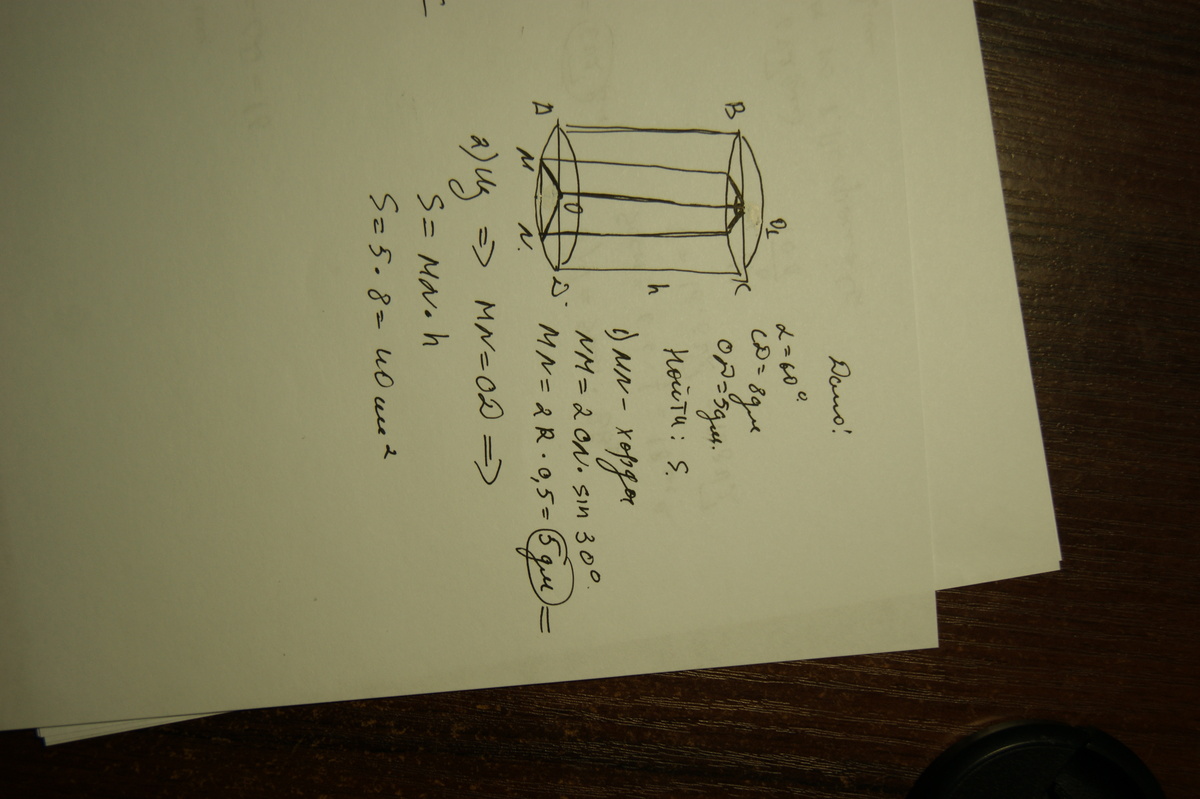 Дано:
α = 60°
CD = 8 дм
OD = 5 дм.
Найти: S.
B
O₁
K
h
A
M
O
N.
D.
1) MN – хорда
NM = 2ON · sin 30°.
MN = 2R · 0,5 = 5 дм =
2) Из => MN = OD =>
S = MN · h
S = 5 · 8 = 40 см²